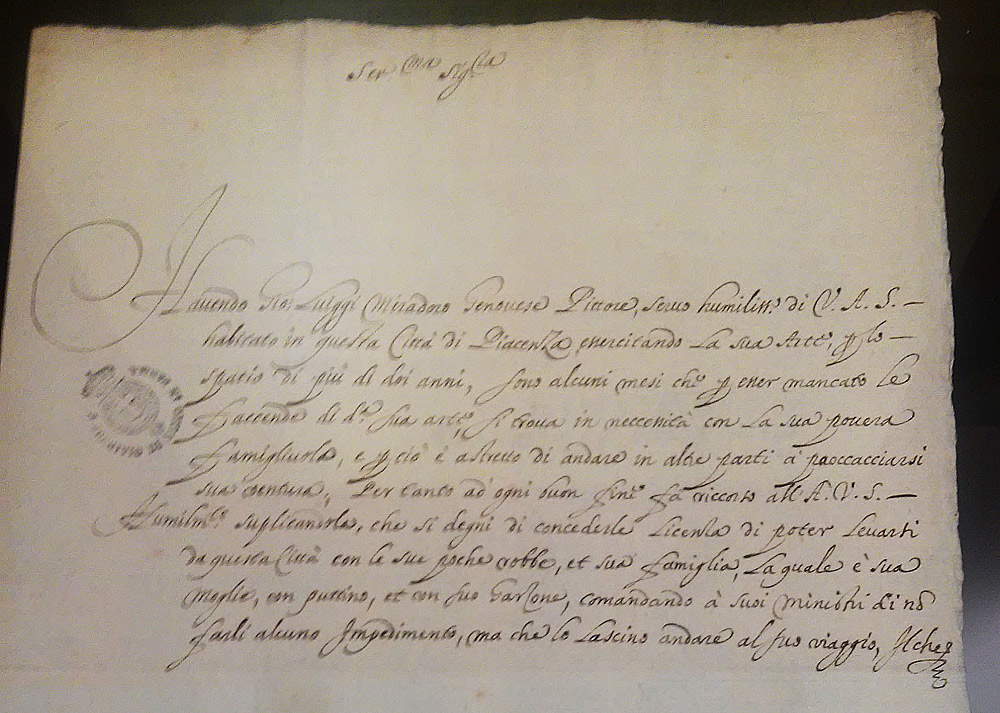 Ser.ma Sig.ra
Havendo Gio: Luiggi Miradoro Genovese Pittore, servo humiliss.o di V. A. S. —
habitato in questa Città di Piacenza esercitando la sua Arte, p lo —
spatio di più di doi anni, sono alcuni mesi che p esser mancato le
faccende di d.a sua arte, si trova in neccessità con la sua povera
famigliuola, e p ciò è astretto di andare in altre parti à procacciarsi
sua ventura, Per tanto ad ogni buon fine fà riccorso all' A. V. S. —
humilm.te suplicandola, che si degni di concederle Licenza di poter levarsi
da questa Città con le sue poche robbe, et sua famiglia, la quale è sua
moglie, un puttino, et un suo Garzone, comandando à suoi Ministri di nō
farli alcuno Impedimento, ma che lo lascino andare al suo viaggio, Il che